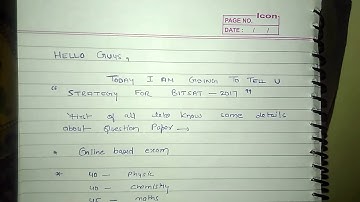 Icon
PAGE NO.
DATE: / /
HELLO GUYS,
TODAY I AM GOING TO TELL U
"STRATEGY FOR BITSAT - 2017"
first of all lets know some details
about Question Paper →
* Online based exam
* 40 - Physic
40 - Chemistry
45 - maths